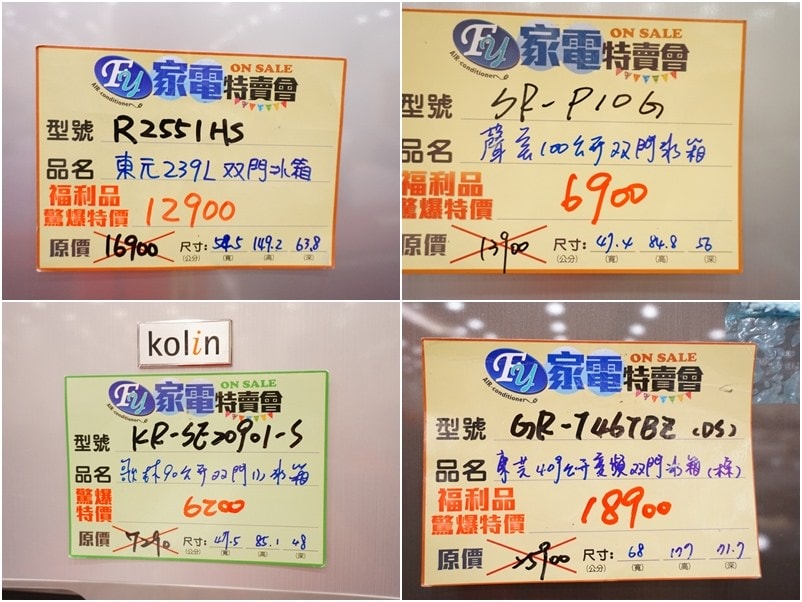 Fy 家電特賣會 ON SALE
AIR-conditioner
型號 R2551HS
品名 東元239L双門冰箱
福利品
驚爆特價 12900
原價 16900 尺寸:(公分) 54.5(寬) 149.2(高) 63.8(深)
Fy 家電特賣會 ON SALE
AIR-conditioner
型號 SR-P10G
品名 聲宝100公升双門冰箱
福利品
驚爆特價 6900
原價 13900 尺寸:(公分) 47.4(寬) 84.8(高) 56(深)
kolin
Fy 家電特賣會 ON SALE
AIR-conditioner
型號 KR-SE20901-S
品名 歌林90公升双門小冰箱
驚爆
特價 6200
原價 7290 尺寸:(公分) 47.5(寬) 85.1(高) 48(深)
Fy 家電特賣會 ON SALE
AIR-conditioner
型號 GR-T46TBZ (DS)
品名 東芝409公升変頻双門冰箱
福利品
驚爆特價 18900
原價 25900 尺寸:(公分) 68(寬) 177(高) 71.7(深)